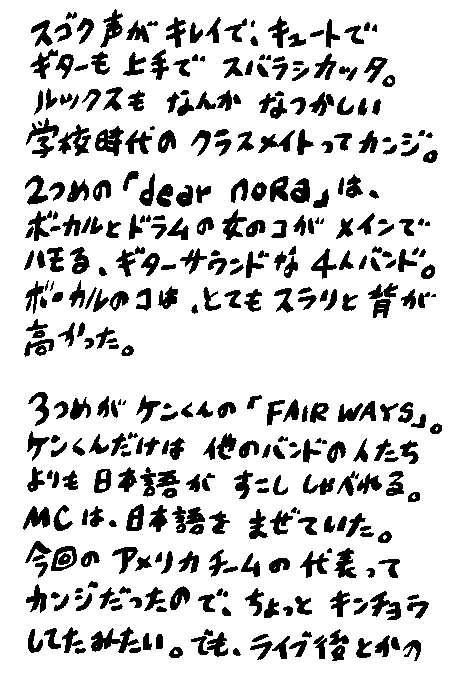 スゴク声がキレイで、キュートで
ギターも上手でスバラシカッタ。
ルックスもなんかなつかしい
学校時代のクラスメイトってカンジ。
2つめの「dear noRa」は、
ボーカルとドラムの女のコがメインで
ハモる、ギターサウンドな4人バンド。
ボーカルのコは、とてもスラリと背が
高かった。
3つめがケンくんの「FAIR WAYS」。
ケンくんだけは他のバンドの人たち
よりも日本語がすこししゃべれる。
MCは、日本語をまぜていた。
今回のアメリカチームの代表って
カンジだったので、ちょっとキンチョウ
してたみたい。でも、ライブ後とかの